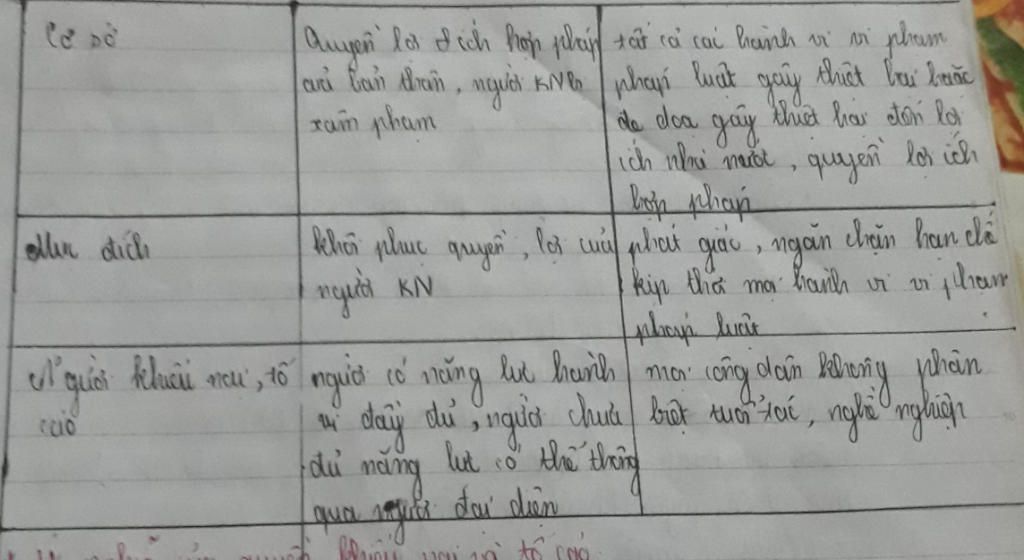 Cơ sở
Quyền lợi ích hợp pháp
của bản thân, người KN bị
xâm phạm
tất cả các hành vi vi phạm
pháp luật gây thiệt hại hoặc
đe dọa gây thiệt hại đến lợi
ích nhà nước, quyền lợi ích
hợp pháp
Mục đích
khôi phục quyền, lợi của
người KN
phát giác, ngăn chặn hạn chế
kịp thời mọi hành vi vi phạm
pháp luật
Người khiếu nại, tố
cáo
người có năng lực hành
vi đầy đủ, người chưa
đủ năng lực có thể thông
qua người đại diện
mọi công dân không phân
biệt tuổi tác, nghề nghiệp
khiếu nại và tố cáo